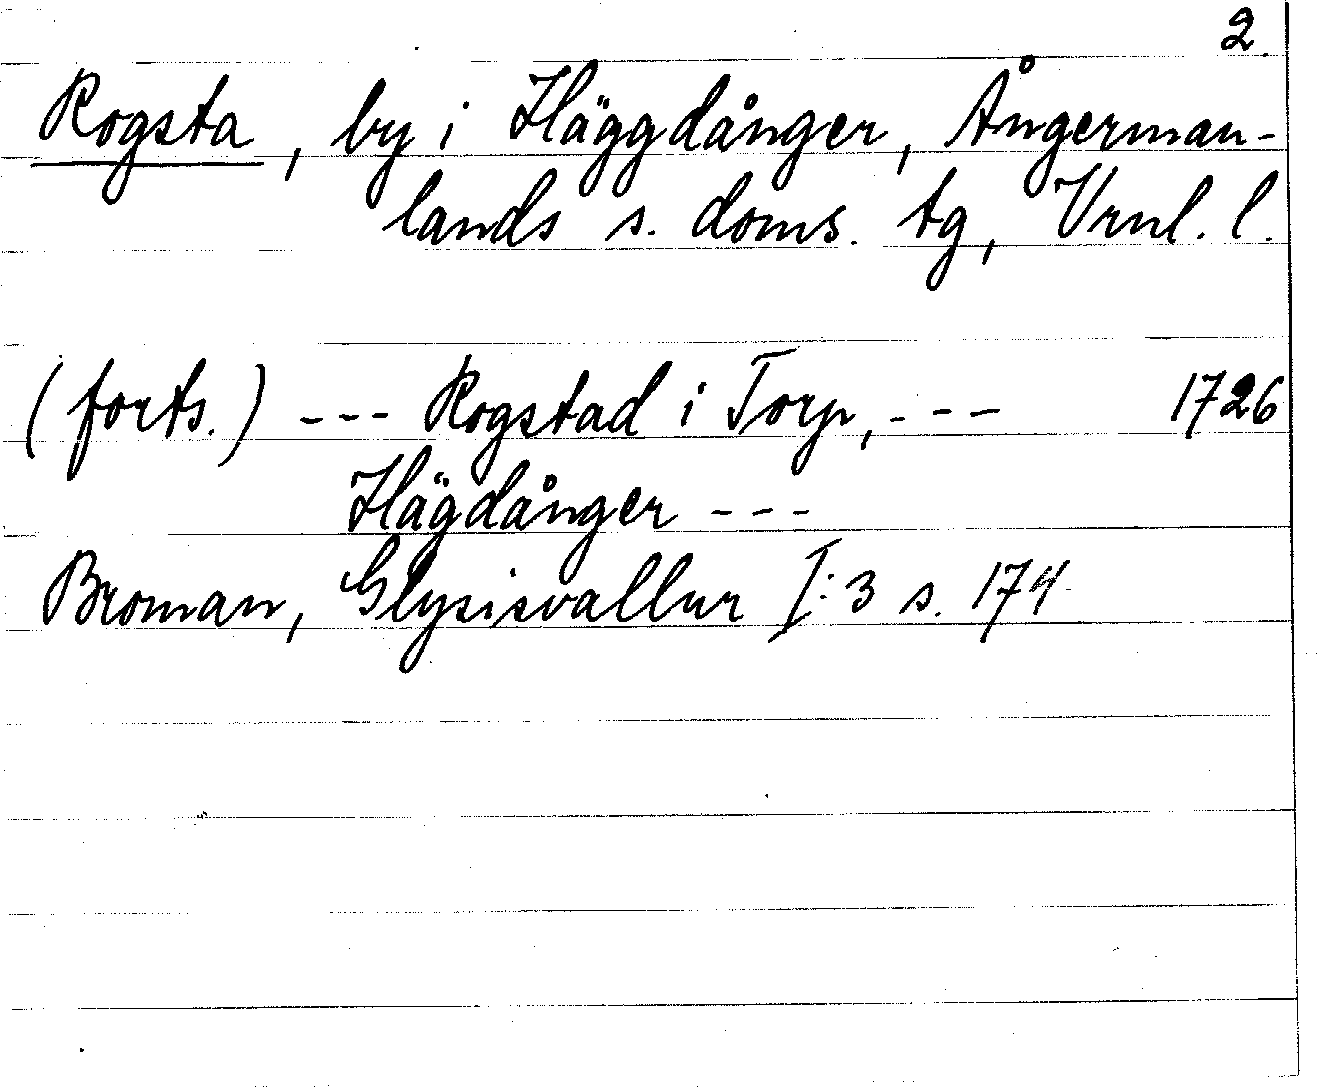 2.
Rogsta, by i Häggdånger, Ångerman-
lands s. doms. tg, Vrnl. l.
(forts.) --- Rogstad i Torp, --- 1726
Hägdånger ---
Broman, Glysisvallur I:3 s. 174